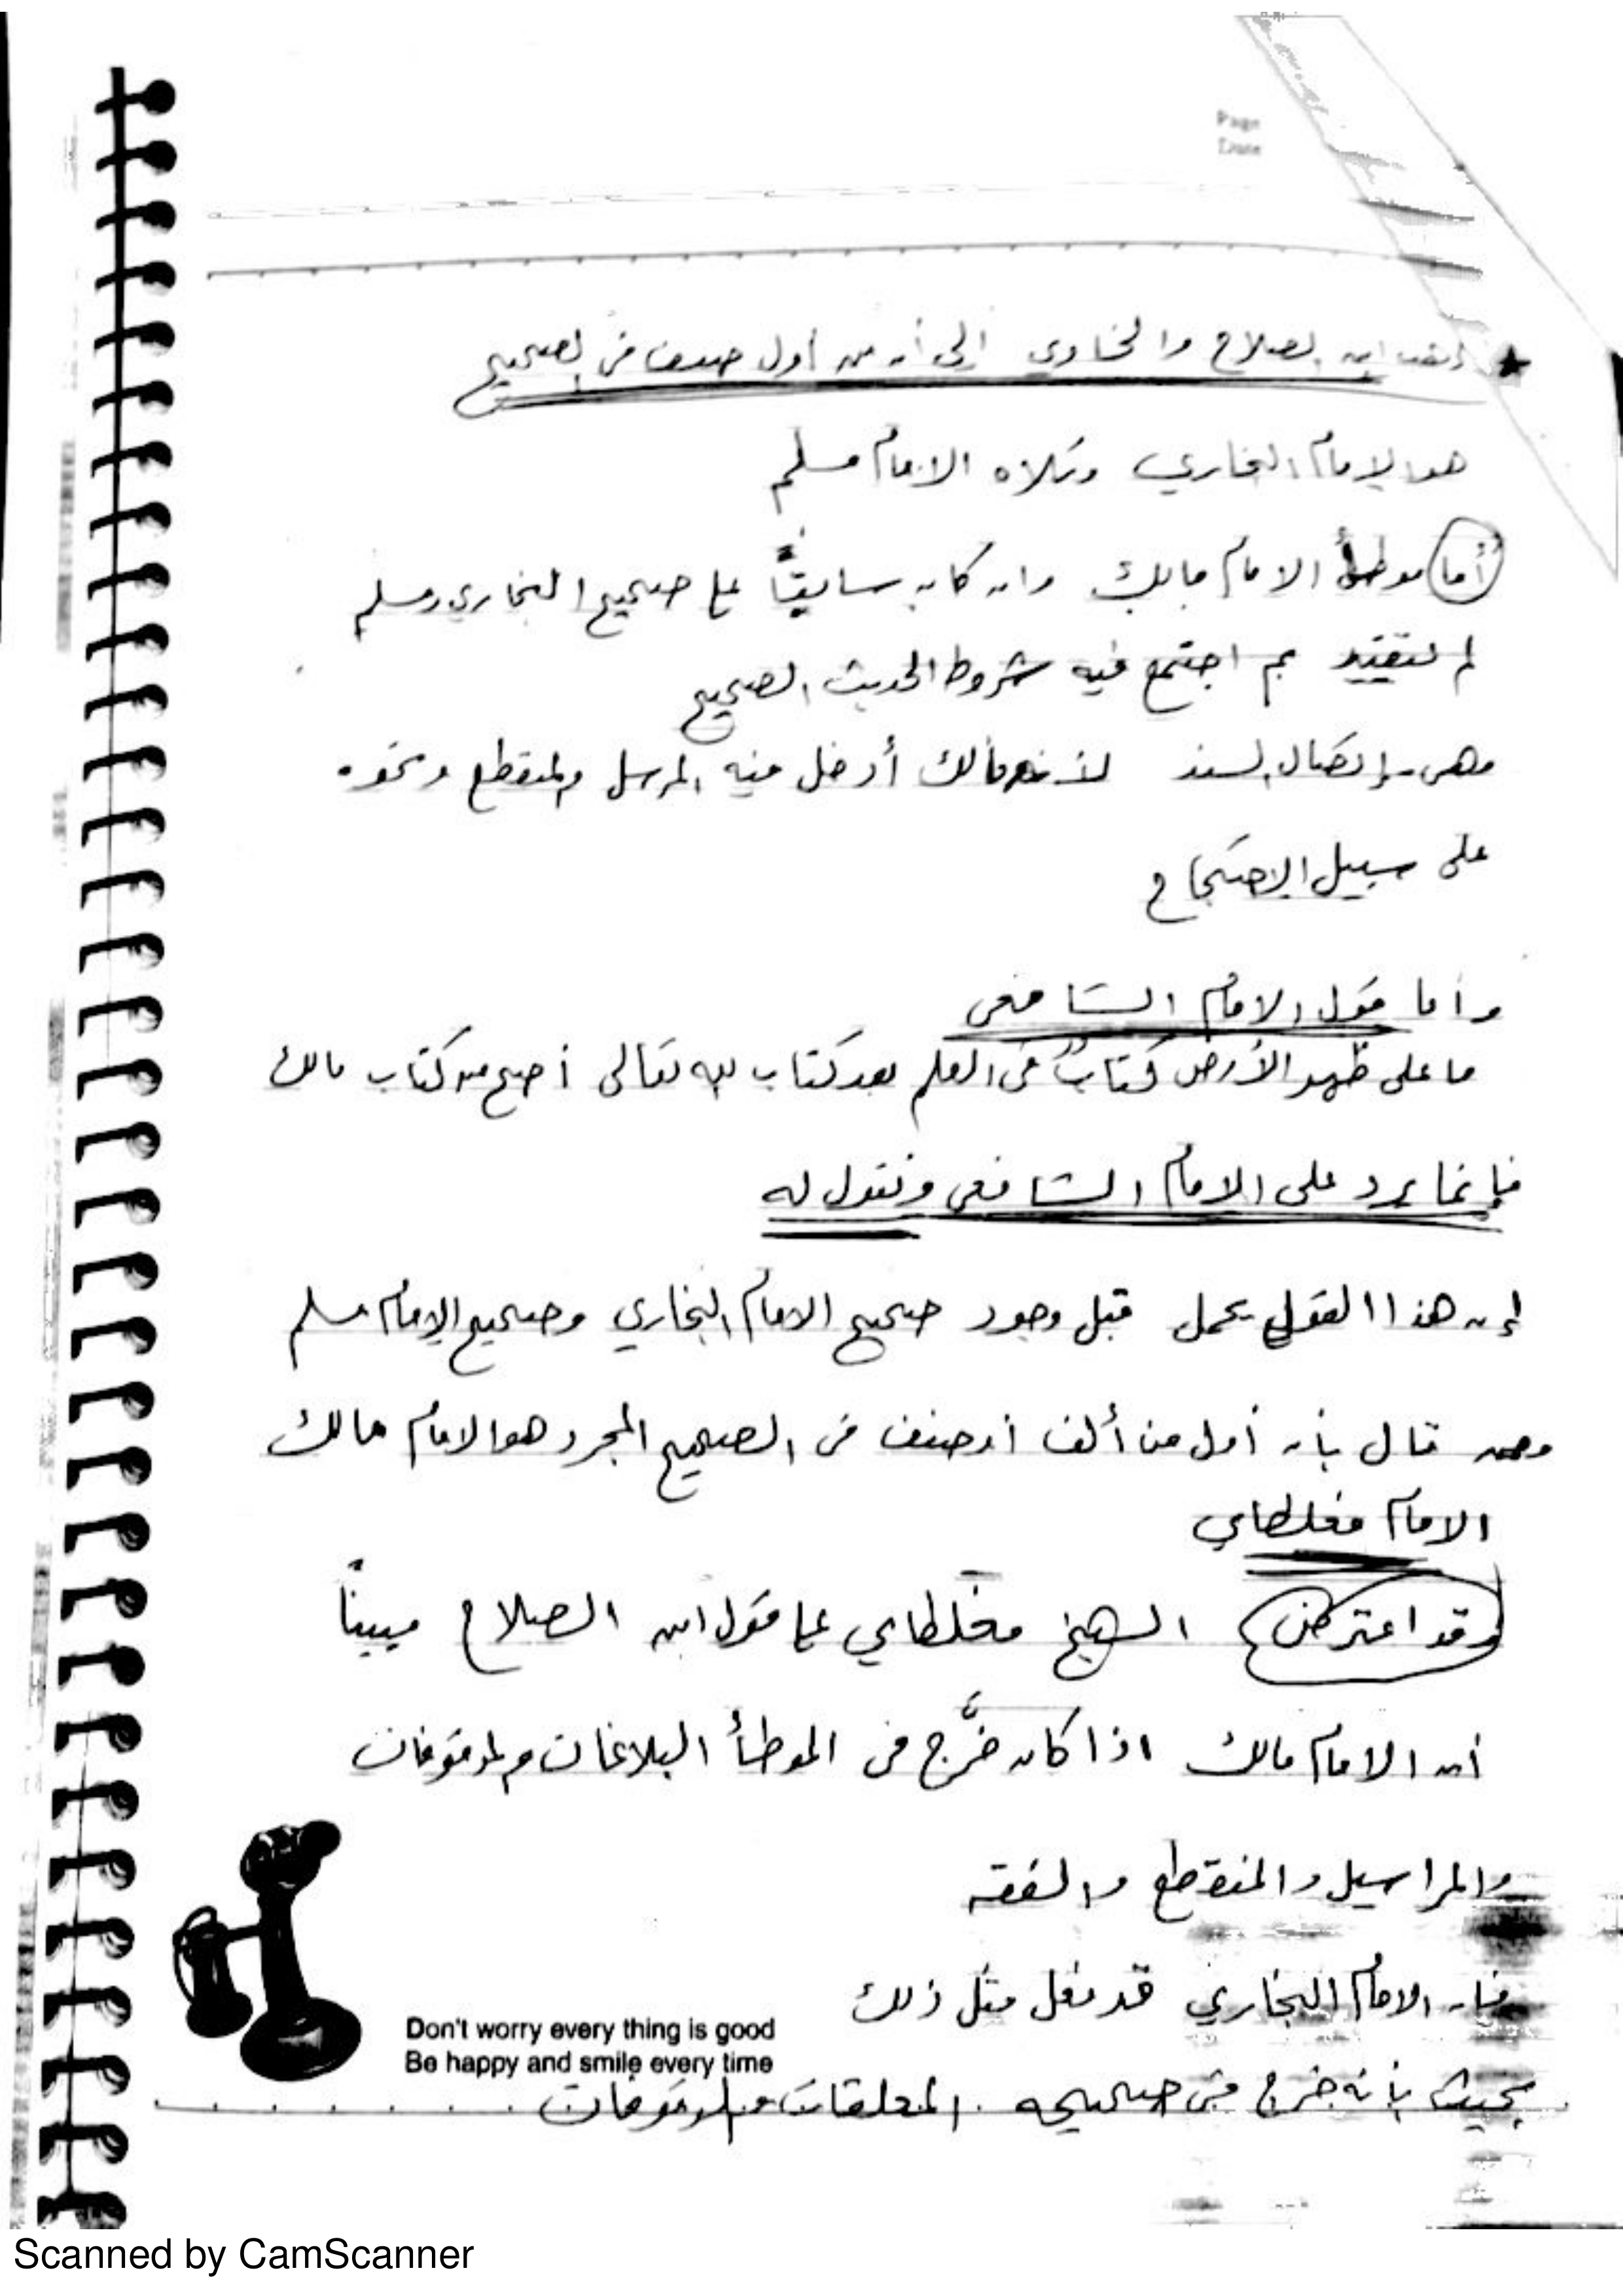 Page
Date
ابن الصلاح والنحاوي إلى أن من أول صنف في الصحيح
هو الإمام البخاري وتلاه الامام مسلم
أما موطأ الامام مالك وان كان سابقاً على صحيح البخاري ومسلم
لم يتقيد بم اجتمع فيه شروط الحديث الصحيح
وهي إتصال السند مالك أدخل فيه المرسل والمنقطع ونحوه
على سبيل الاحتجاج
وأما قول الامام الشافعي
ما على ظهر الأرض كتابٌ في العلم بعد كتاب لله تعالى أصح من كتاب مالك
فإنما يرد على الامام الشافعي ونقول له
إن هذا القول يحمل قبل وجود صحيح الامام البخاري وصحيح الإمام مسلم
وممن قال بأن أول من ألف أو صنف في الصحيح المجرد هو الامام مالك
الامام مغلطاي
وقد اعترض الشيخ مغلطاي على قول ابن الصلاح مبيناً
أن الامام مالك اذا كان خرَّج في الموطأ البلاغات والموقوفات
والمراسيل والمنقطع والفقه
فإن الامام البخاري قد فعل مثل ذلك
بحيث بأنه خرج في صحيحه المعلقات والموقوفات
Don't worry every thing is good
Be happy and smile every time
Scanned by CamScanner